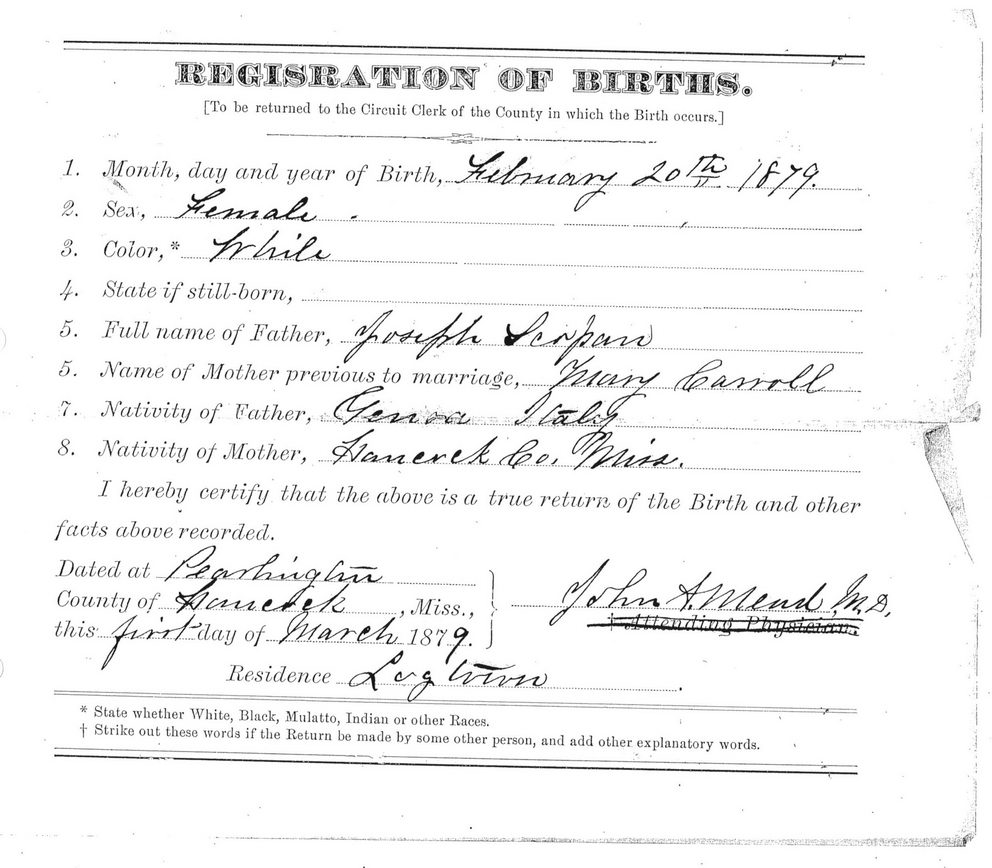 REGISRATION OF BIRTHS.
[To be returned to the Circuit Clerk of the County in which the Birth occurs.]
1. Month, day and year of Birth, February 20th 1879.
2. Sex, Female .
3. Color,* White
4. State if still-born,
5. Full name of Father, Joseph Scopan
5. Name of Mother previous to marriage, Mary Carroll
7. Nativity of Father, Genoa Italy
8. Nativity of Mother, Hancock Co. Miss.
I hereby certify that the above is a true return of the Birth and other
facts above recorded.
Dated at Pearlington
County of Hancock, Miss.,
this first day of March 1879.
John A. Mead M.D.
† Attending Physician.
Residence Logtown.
* State whether White, Black, Mulatto, Indian or other Races.
† Strike out these words if the Return be made by some other person, and add other explanatory words.